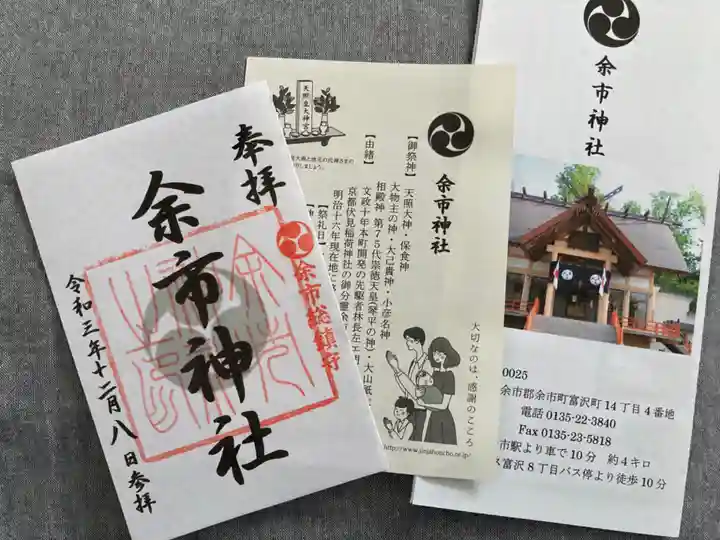 奉拝
余市神社
令和三年十二月八日参拝
余市総鎮守
天照皇大神宮
余市神社
【御祭神】天照大神・保食神
大物主の神・大己貴神・小彦名神
相殿神 第75代崇徳天皇(琴平の神)・大山祇
【由緒】
文政十年本町開発の先駆者林長左
京都伏見稲荷神社の御分霊余
明治十六年現在地に
【祭礼日】
大切なのは、感謝のこころ
http://www.jinjahoncho.or.jp/
余市神社
0025
余市郡余市町富沢町14丁目4番地
電話 0135-22-3840
Fax 0135-23-5818
市駅より車で10分 約4キロ
ス富沢8丁目バス停より徒歩10分